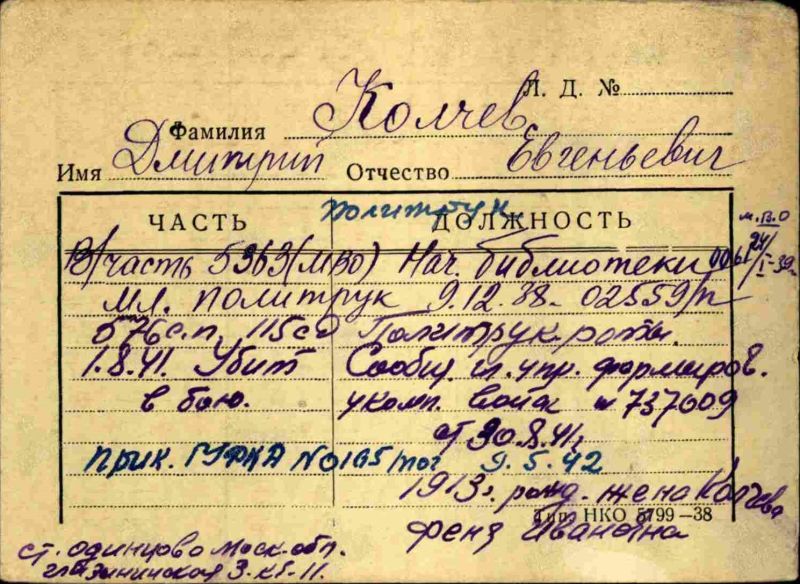 Л. Д. №
Фамилия Колчев
Имя Дмитрий Отчество Евгеньевич
политрук
ЧАСТЬ ДОЛЖНОСТЬ
м.в.о
В/часть 5363 (мво) Нач. библиотеки 0061 24/I-39г.
мл. политрук 9.12.38. 02559/п
576 с.п. 115 сд Политрук роты.
1.8.41. Убит Сообщ. гл. упр. формиров.
в бою. укомп. войск № 737009
от 30.8.41г.
прик. ГУФКА № 0165/пог 9.5.42
1913г. рожд. жена Колчева
Тип. НКО 5799—38
Ивановна
ст. одинцово Моск. обл.
3. кв. 11.